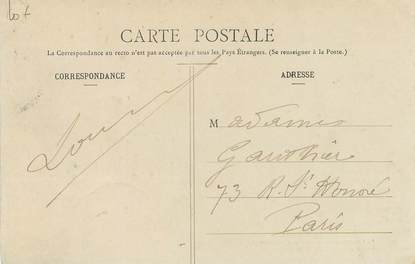 Lot
CARTE POSTALE
La Correspondance au recto n'est pas acceptée par tous les Pays Étrangers. (Se renseigner à la Poste.)
CORRESPONDANCE
ADRESSE
Madame
Gauthier
73 R. St Honoré
Paris